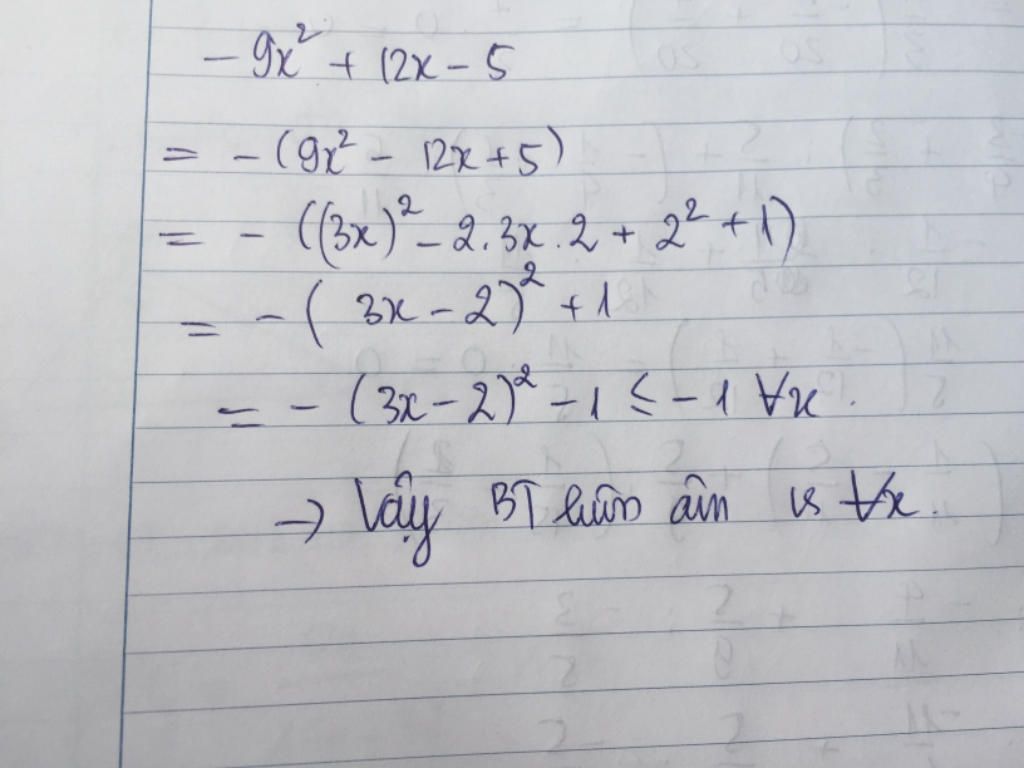 - 9x² + 12x - 5
= - (9x² - 12x + 5)
= - ((3x)² - 2.3x.2 + 2² + 1)
= - ( 3x - 2)² + 1
= - (3x - 2)² - 1 ≤ - 1 ∀x.
→ Vậy BT luôn âm vs ∀x.